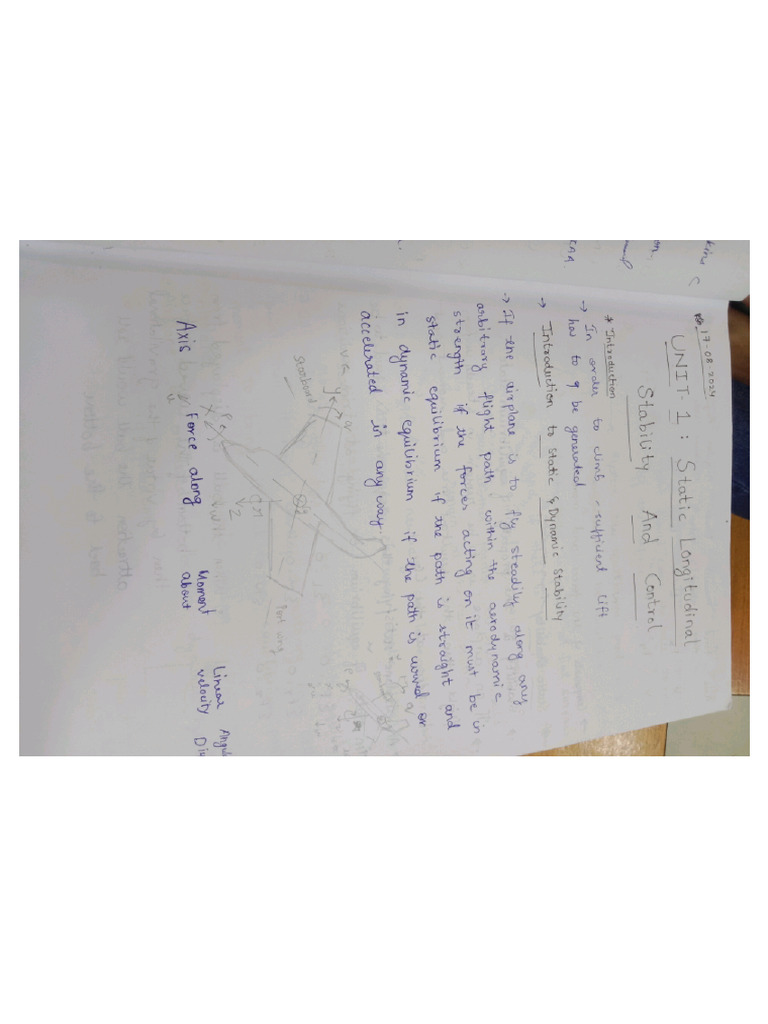 17-08-2024
UNIT 1 : Static Longitudinal
Stability And Control
* Introduction
→ In order to climb sufficient lift
has to g be generated
→ Introduction to static & Dynamic Stability
→ If the airplane is to fly steadily along any
arbitrary flight path within the aerodynamic
strength if the forces acting on it must be in
static equilibrium if the path is straight and
in dynamic equilibrium if the path is curved or
accelerated in any way.
starboard
y
q
cg
Port
x
P
u
M
Z
w
Axis Force along Moment about Linear velocity